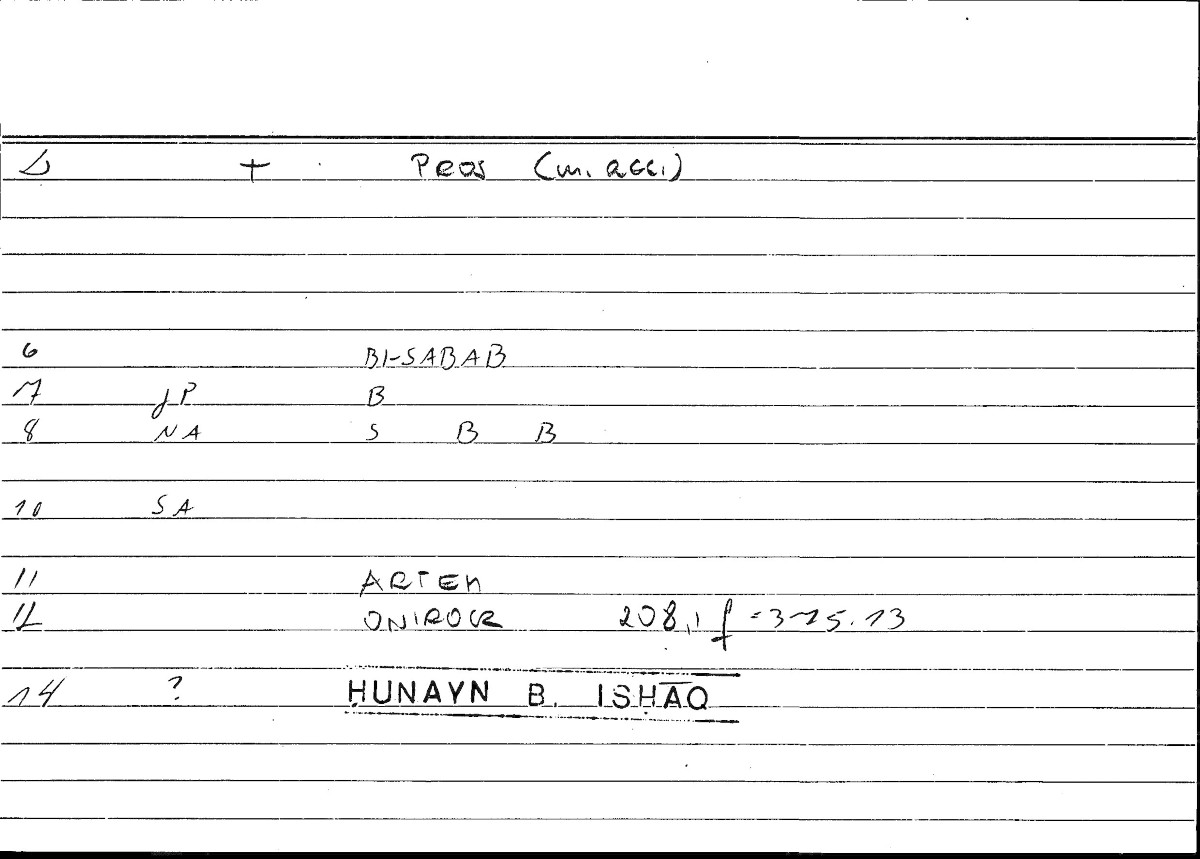 + PROS (m. acc.)
6 BI-SABAB
7 JP B
8 NA S B B
10 SA
11 ARTEM
12 ONIROCR 208,1 f = 325.13
14 ? ḤUNAYN B. ISḤĀQ